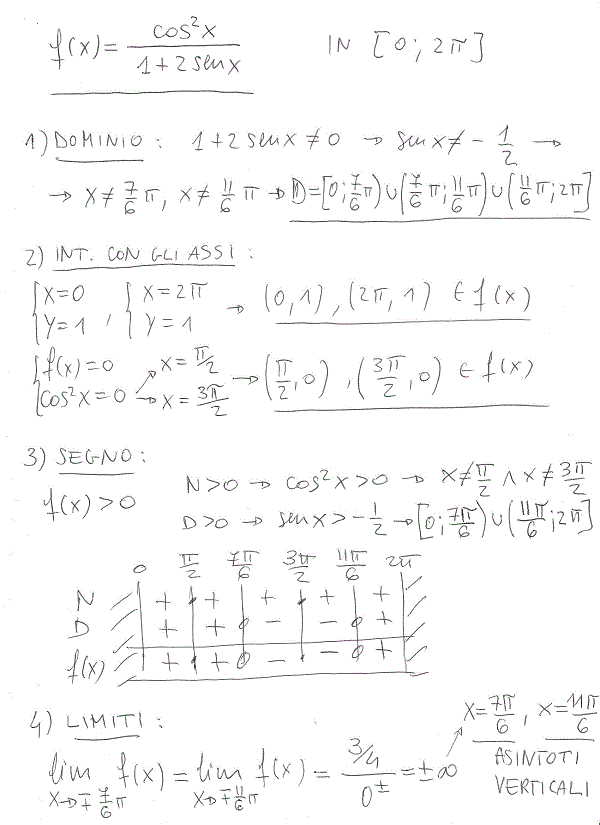 f(x) = cos²x / (1+2senx)   IN [0; 2π]
1) DOMINIO: 1+2senx ≠ 0 → senx ≠ -1/2 →
→ x ≠ 7/6 π, x ≠ 11/6 π → D=[0; 7/6 π) ∪ (7/6 π; 11/6 π) ∪ (11/6 π; 2π]
2) INT. CON GLI ASSI:
{x=0 {x=2π
{y=1 , {y=1 → (0,1), (2π, 1) ∈ f(x)
{f(x)=0 x=π/2
{cos²x=0 x=3π/2 → (π/2, 0), (3π/2, 0) ∈ f(x)
3) SEGNO:
f(x)>0 N>0 → cos²x>0 → x≠π/2 ∧ x≠3π/2
D>0 → senx>-1/2 → [0; 7π/6) ∪ (11π/6; 2π]
0 π/2 7π/6 3π/2 11π/6 2π
N + + + + +
D + + - - +
f(x) + + - - +
4) LIMITI: x=7π/6, x=11π/6
lim x→∓7/6π f(x) = lim x→∓11/6π f(x) = (3/4)/0^± = ±∞ ASINTOTI
VERTICALI